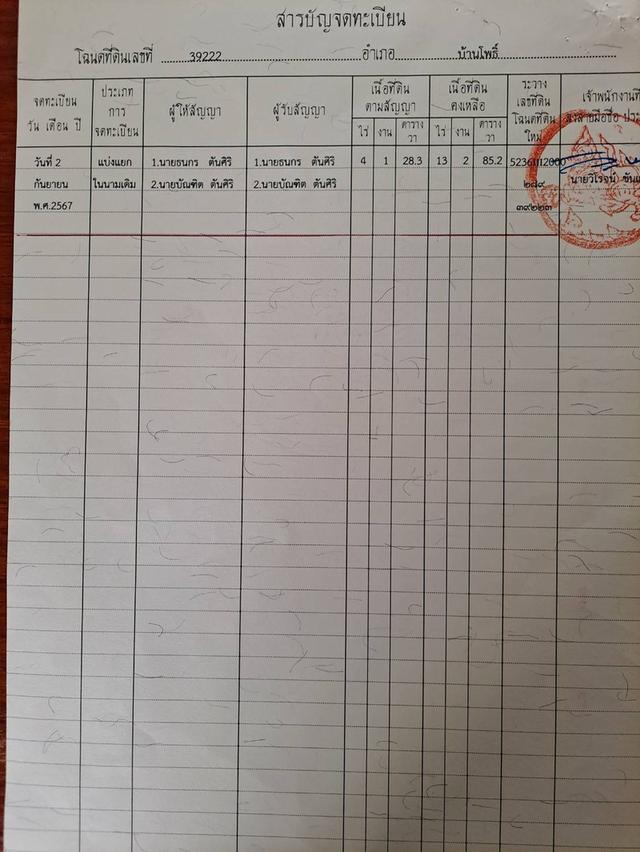 สารบัญจดทะเบียน
โฉนดที่ดินเลขที่ 39222 อำเภอ บ้านโพธิ์
จดทะเบียน วัน เดือน ปี
ประเภท การ จดทะเบียน
ผู้ให้สัญญา
ผู้รับสัญญา
เนื้อที่ดิน ตามสัญญา
ไร่ งาน ตาราง วา
เนื้อที่ดิน คงเหลือ
ไร่ งาน ตาราง วา
ระวาง เลขที่ดิน โฉนดที่ดิน ใหม่
เจ้าพนักงานที่
ลงลายมือชื่อ ประ
วันที่ 2 แบ่งแยก 1.นายธนกร ตันศิริ 1.นายธนกร ตันศิริ 4 1 28.3 13 2 85.2
กันยายน ในนามเดิม 2.นายบัณฑิต ตันศิริ 2.นายบัณฑิต ตันศิริ ๒๘๙ นายวิโรจน์
พ.ศ.2567 ๓๙๒๒๓